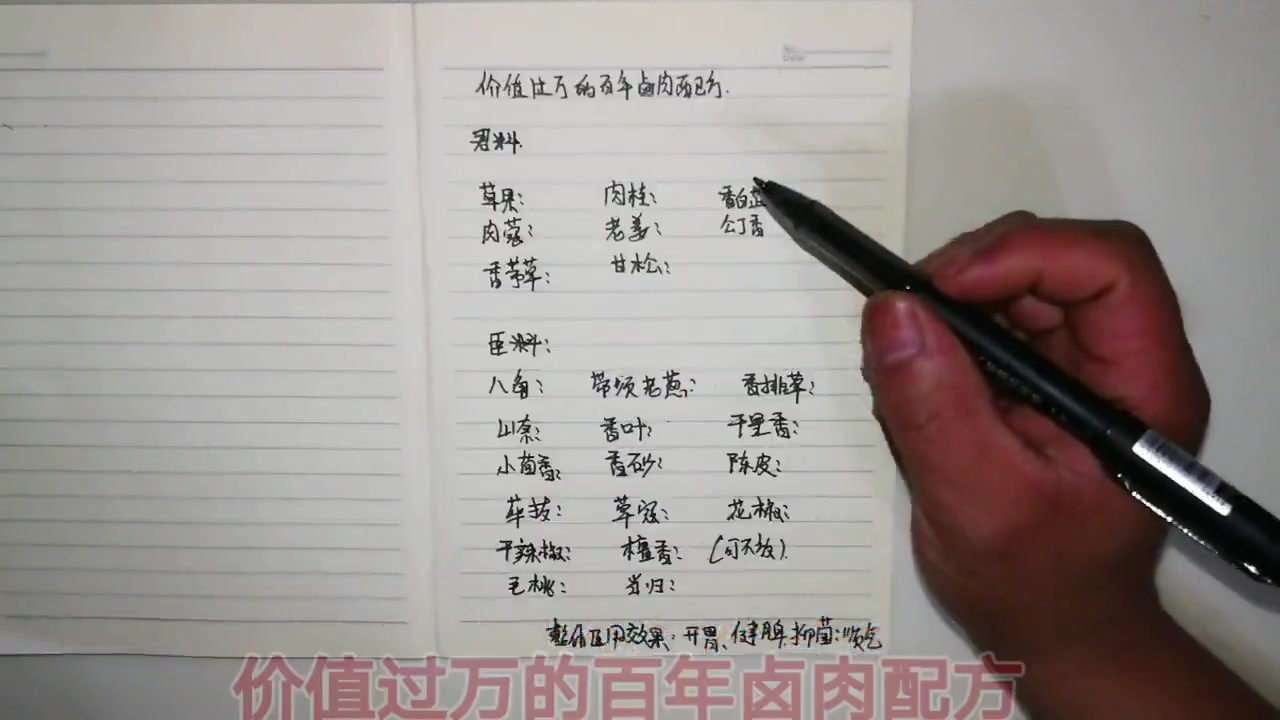 价值过万的百年卤肉配方.
君料.
草果: 肉桂: 香白芷
肉蔻: 老姜: 公丁香
香茅草: 甘松:
臣料:
八角: 带须老葱: 香排草:
山奈: 香叶: 千里香:
小茴香: 香砂: 陈皮:
荜拔: 草寇: 花椒:
干辣椒: 檀香: (可不放).
毛桃: 当归:
整体药用效果:开胃、健脾、抑菌:顺气
价值过万的百年卤肉配方